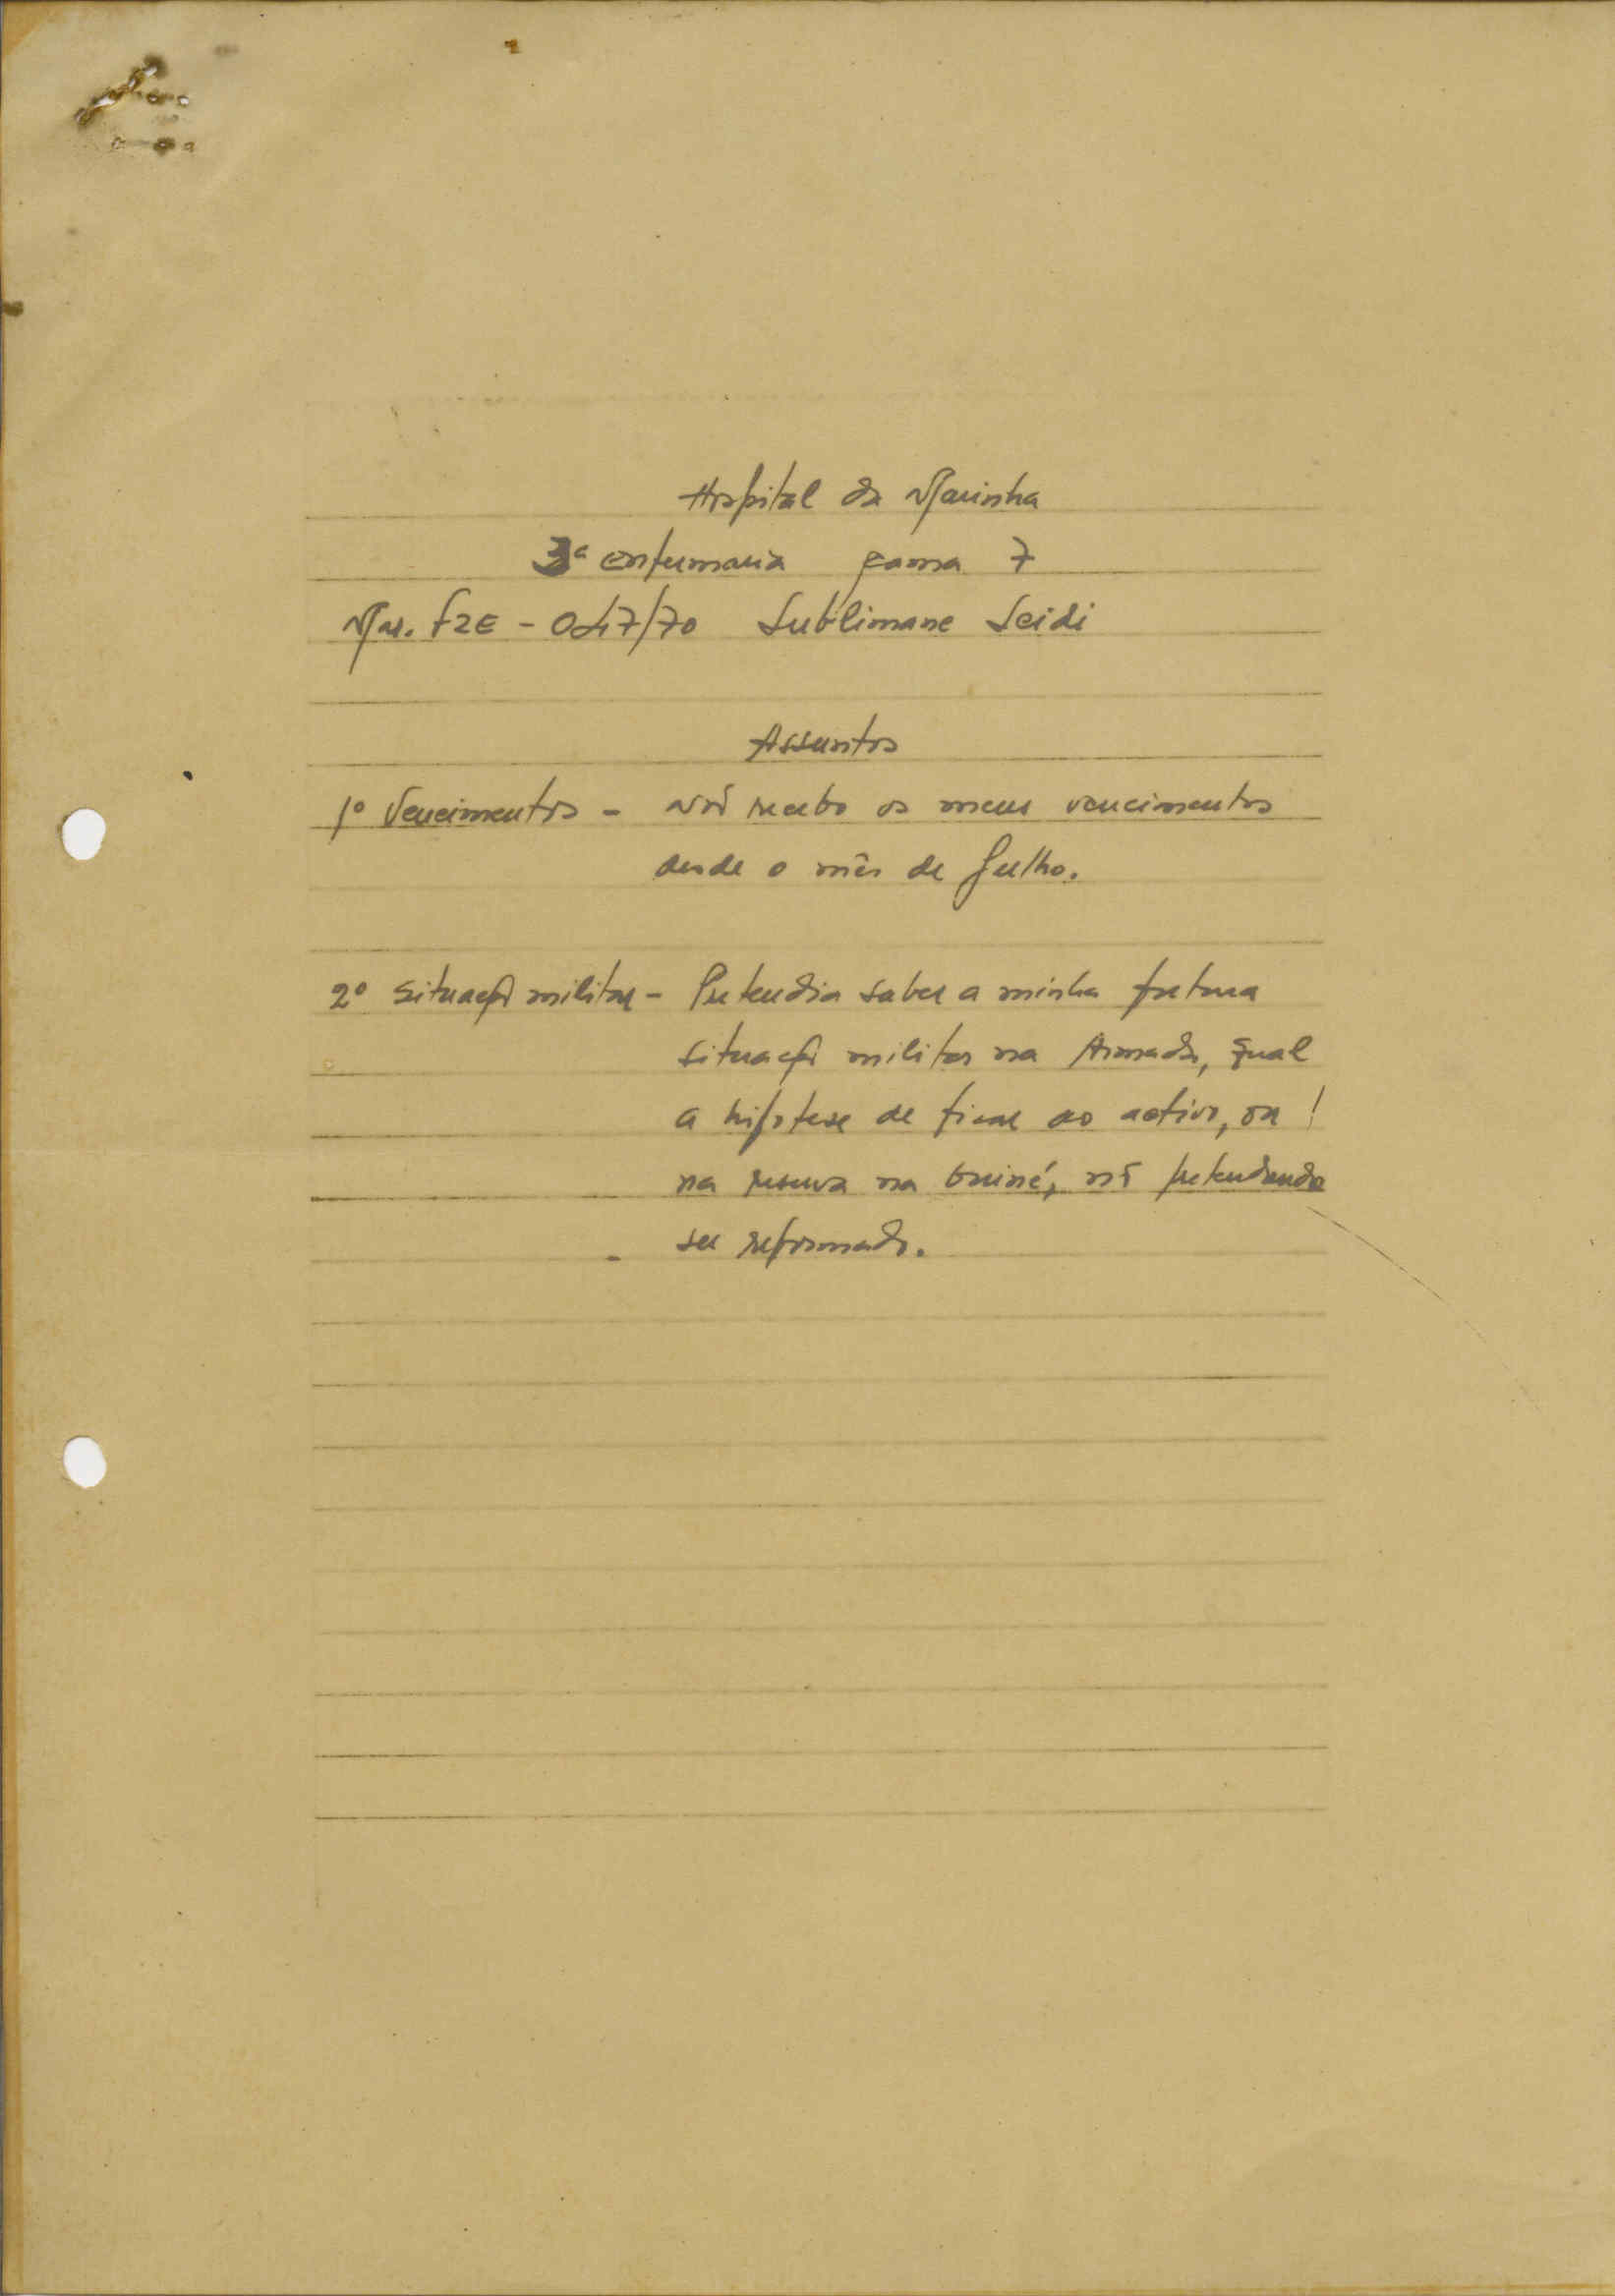 Hospital da Marinha
3ª enfermaria cama 7
Mar. FZE - 047/70 Sublimane Seidi
Assuntos
1º Vencimentos - Não recebo os meus vencimentos
desde o mês de Julho.
2º Situação militar - Pretendia saber a minha futura
situação militar na Armada, qual
a hipotese de ficar no activo, ou !
na reserva na Guiné, não pretendendo
ser reformado.